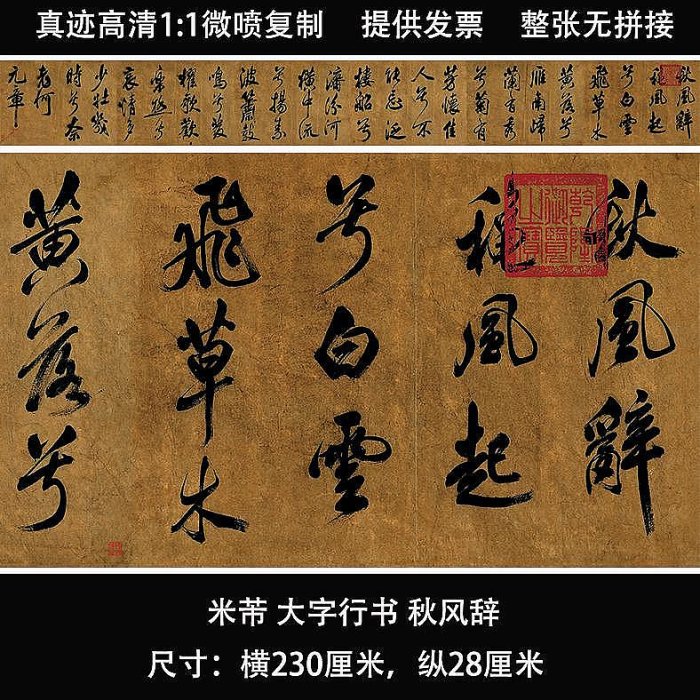 真迹高清1:1微喷复制 提供发票 整张无拼接
秋風辭
秋風起
兮白雲
飛草木
黄落兮
雁南歸
蘭有秀
兮菊有
芳懷佳
人兮不
能忘泛
樓船兮
濟汾河
横中流
兮揚素
波簫鼓
鳴兮發
棹歌歡
樂極兮
哀情多
少壯幾
時兮奈
老何
元章
秋風辭
秋風起
兮白雲
飛草木
黄落兮
乾隆御覽之寶
米芾 大字行书 秋风辞
尺寸：横230厘米，纵28厘米